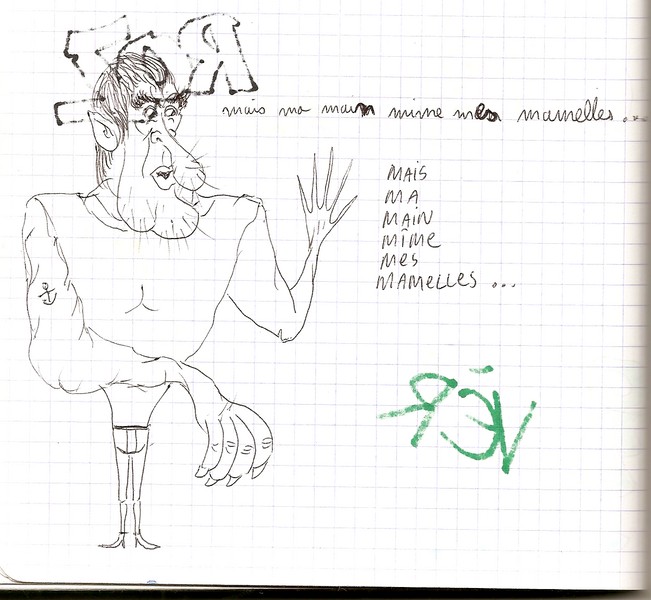 mais ma main mime mes mamelles...
MAIS
MA
MAIN
MÎME
MES
MAMELLES ...